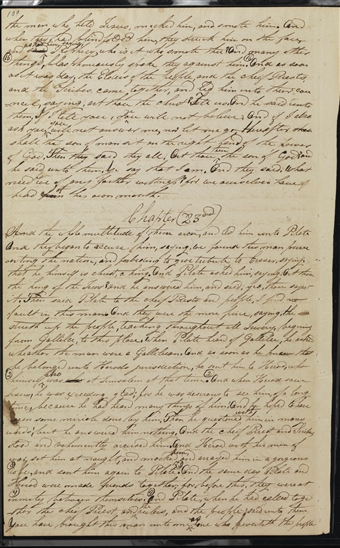 the men who held Jesus, mocked him, and smote him. And
when they had blindfolded him, they struck him on the face,
and asked him, saying, Prophesy, who is it who smote thee? And many other
things blasphemously spake they against him. And as soon
as it was day, the Elders of the people, and the chief Priests,
and the Scribes, came together, and led him into their co-
uncil, saying, art thou the Christ? tell us. And he said unto
them, if I tell you, ye will not believe: And if I also
ask you, ye will not answer me, nor let me go. Hereafter
shall the son of man sit on the right hand of the power
of God. Then they said they all, art thou then the son of God? And
he said unto them, ye say that I am. And they said, what
need we of any further witness? for we ourselves have
heard from his own mouth.
Chapter (23rd)
And the whole multitude of them arose, and led him unto Pilate
And they began to accuse him, saying, we found this man perv-
erting the nation, and forbidding to give tribute to Cesar, saying,
that he himself is Christ, a king. And Pilate asked him, saying, art thou
the king of the Jews? And he answered him, and said,
Then said Pilate to the chief Priests and people, I find no
fault in this man. And they were the more fierce, saying, He
stireth up the people, teaching throughout all Jewry, begining
from Gallilee, to this place. When Pilate heard of Gallilee, he asked
whether the man were a Galilean. And as soon as he knew that
he belonged unto Herods jurisdiction, he sent him to Herod, who
himself was also at Jerusalem at that time. And when Herod saw
Jesus, he was exceeding glad, for he was desirous to see him of a long
time, because he had heard many things of him; And he hoped to have
seen some miracle done by him. Then he questioned him in many
words; but he answered him nothing. And the chief Priests and Scribes,
stood and vehemently accused him. And Herod with his men of
war, set him at naught, and mocked him, and arrayed him in a gorgeous
robe, and sent him again to Pilate. And the same day Pilate and
Herod were made friends together; for before this, they were at
enmity between themselves. And Pilate, when he had called toge-
ther the chief Priests and rulers, and the people, said unto them
You have brought this man unto me, as one who perverteth the people